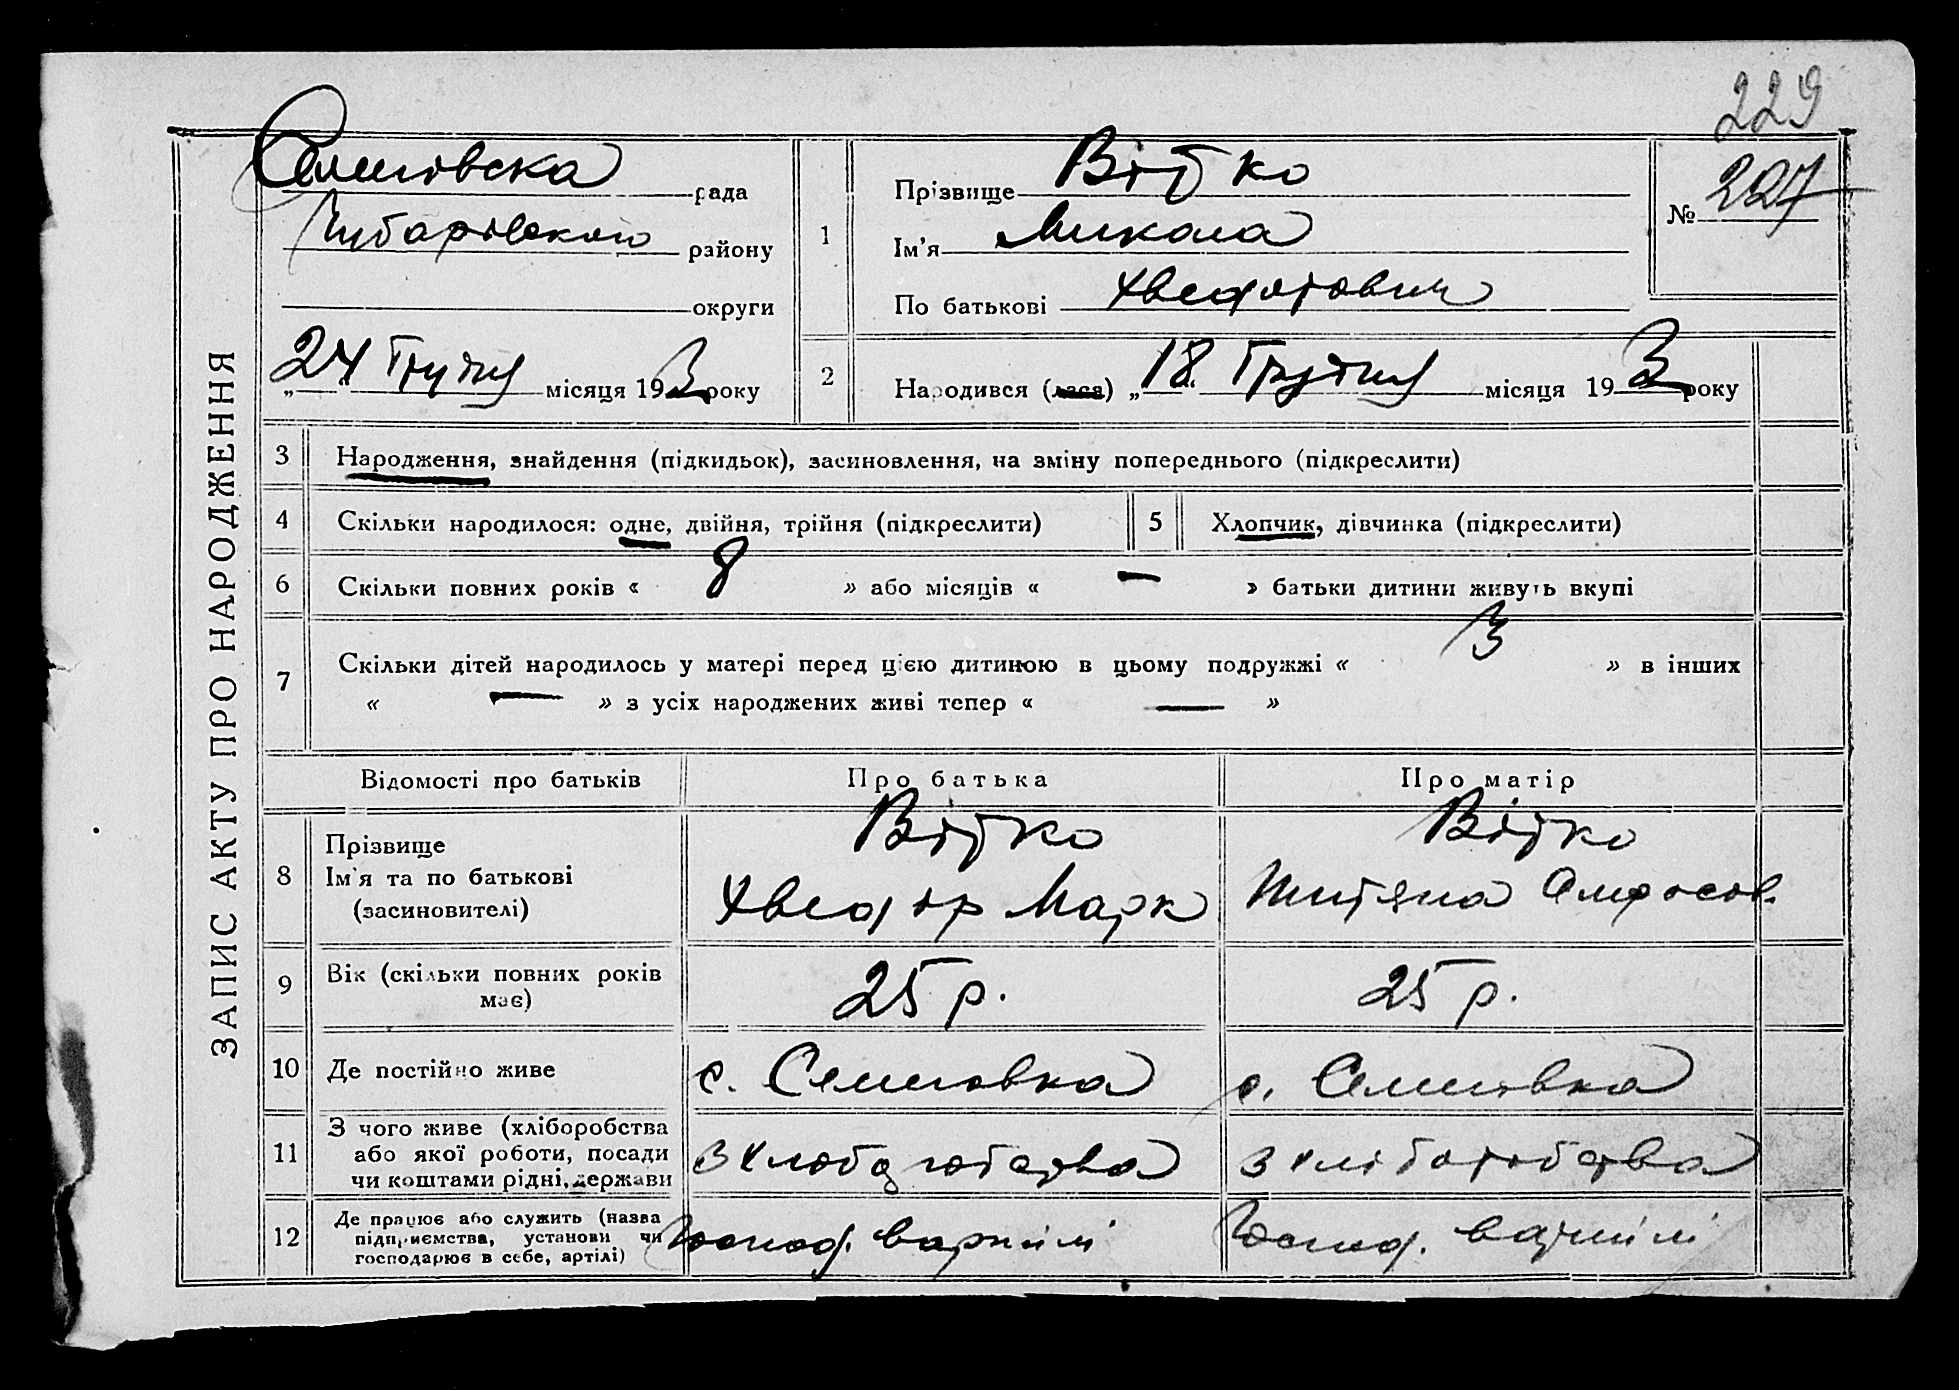 229
Семенівська рада
Чубарівского району
округи
„24" Грудня місяця 193 року
1
Прізвище Бойко
Ім'я Микола
По батькові Хведотович
№ 227
2
Народився (лася) „18" Грудня місяця 193 року
ЗАПИС АКТУ ПРО НАРОДЖЕННЯ
3 Народження, знайдення (підкидьок), засиновлення, на зміну попереднього (підкреслити)
4 Скільки народилося: одне, двійня, трійня (підкреслити)
5 Хлопчик, дівчинка (підкреслити)
6 Скільки повних років « 8 » або місяців « — » батьки дитини живуть вкупі
7 Скільки дітей народилось у матері перед цією дитиною в цьому подружжі « 3 » в інших
« — » з усіх народжених живі тепер « — »
Відомості про батьків Про батька Про матір
8
Прізвище
Ім'я та по батькові
(засиновителі)
Хведор Марк
9
Вік (скільки повних років
має)
25 р.
25 р.
10 Де постійно живе
с. Семеновка
с. Семеновка
11
З чого живе (хліборобства
або якої роботи, посади
чи коштами рідні, держави
з хлоборобства
з хліборобства
12
Де працює або служить (назва
підприємства, установи чи
господарює в себе, артілі)
Господ. в артілі
Господ. в артілі